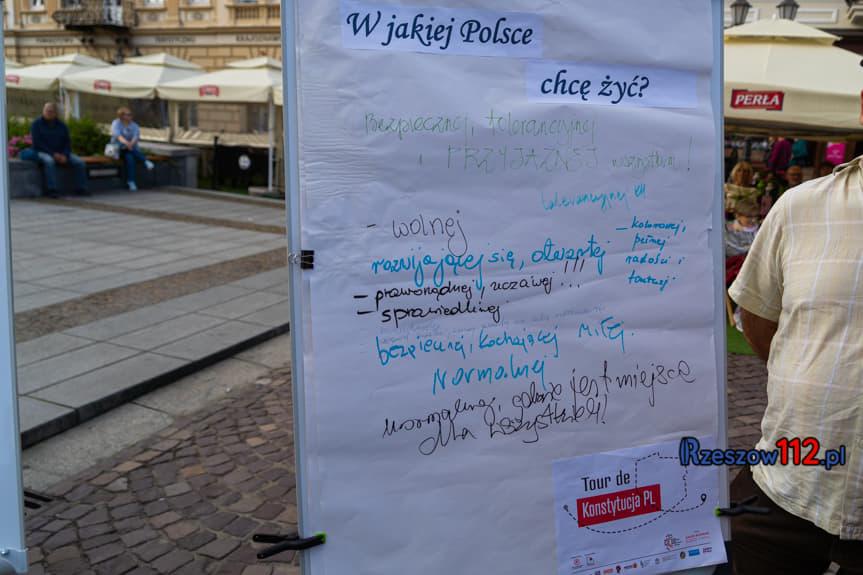 W jakiej Polsce
chcę żyć?
Bezpiecznej, tolerancyjnej
i PRZYJAZNEJ wszystkim!
tolerancyjnej
- wolnej
rozwijającej się, otwartej
- kolorowej,
pełnej
radości i
fantazji
- praworządnej, uczciwej!!!
- sprawiedliwej
bezpiecznej, kochającej miłej.
Normalnej
normalnej, gdzie jest miejsce
dla wszystkich!
Tour de
Konstytucja PL
PERŁA
Rzeszow112.pl